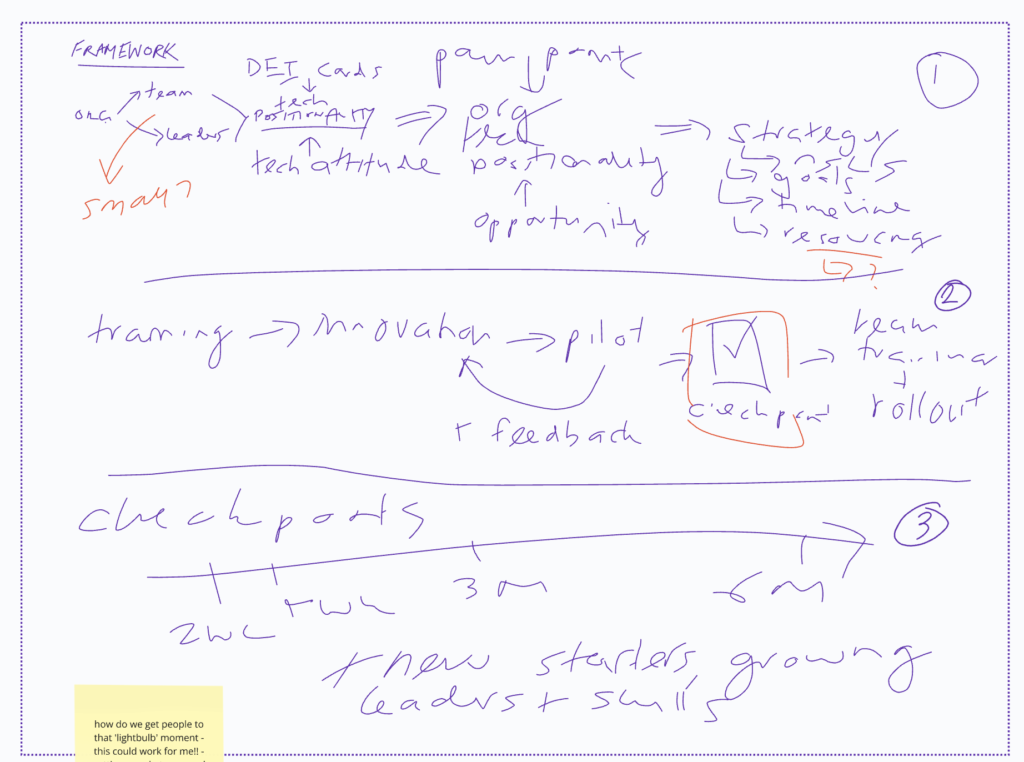 FRAMEWORK
org
team
leaders
small?
DEI cards
tech
POSITIONALITY
tech attitude
pain points
org
tech
positionality
opportunity
strategy
goals
timeline
resourcing
?
1
2
training
innovation
pilot
+ feedback
checkpoint
team
training
+
rollout
checkpoints
3
2wk
3 m
6 m
+ new starters, growing
leaders + skills
how do we get people to
that 'lightbulb' moment -
this could work for me!! -